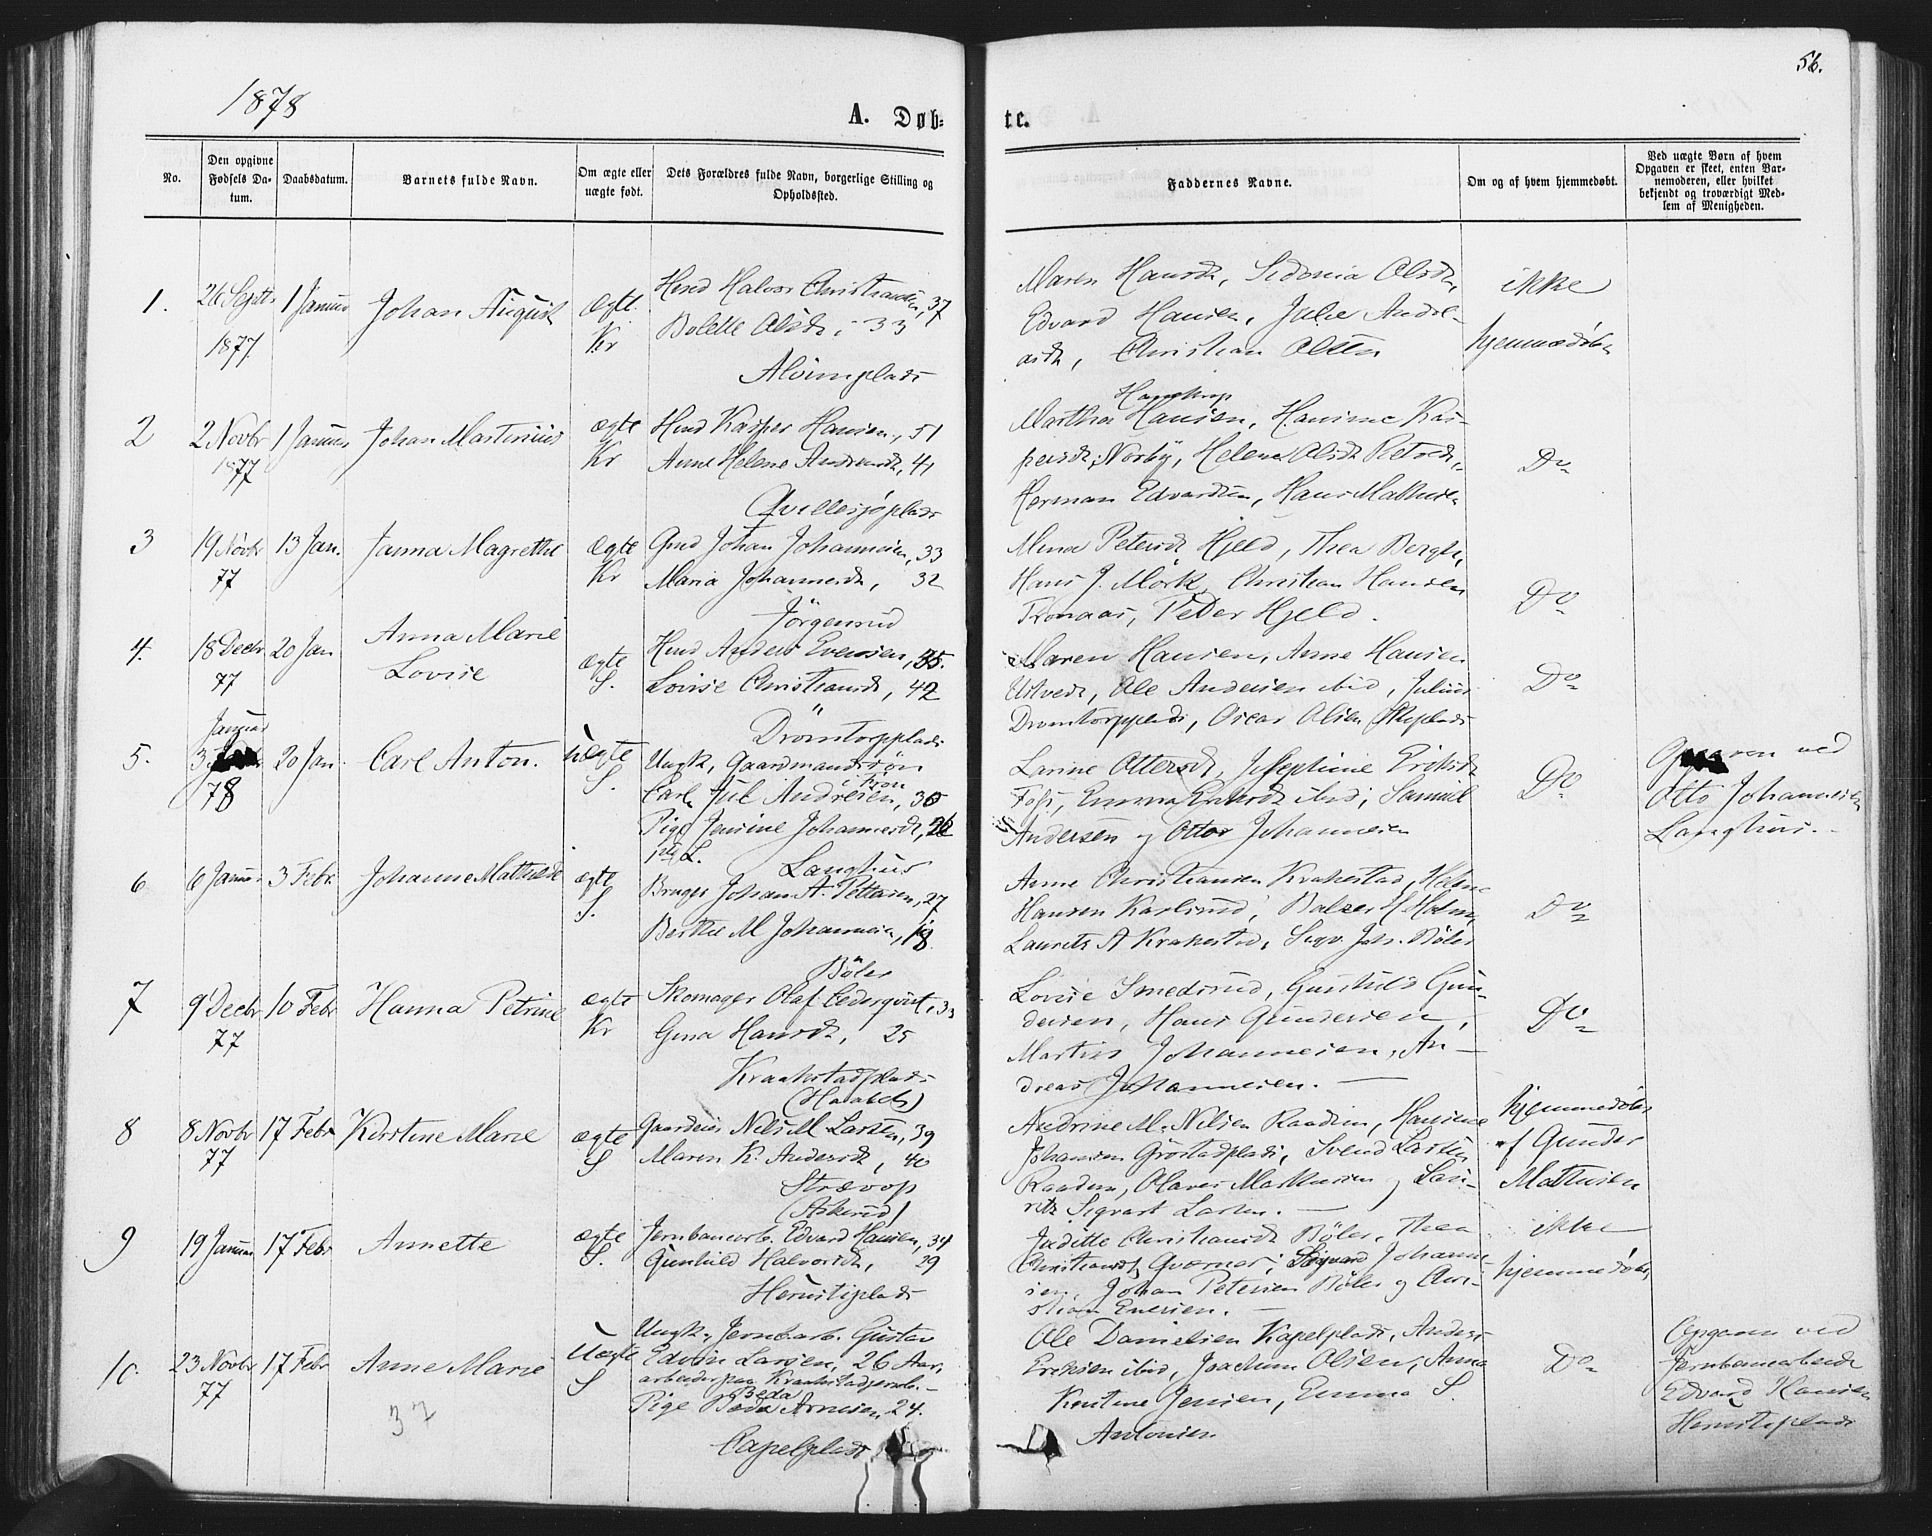 1878
56.
A. Døb-
te.
No.
Den opgivne Fødsels Da-tum.
Daabsdatum.
Barnets fulde Navn.
Om ægte eller uægte født.
Dets Forældres fulde Navn, borgerlige Stilling og Opholdssted.
Faddernes Navne.
Om og af hvem hjemmedøbt.
Ved uægte Børn af hvem Opgaven er skeet, enten Bar-nemoderen, eller hvilket bekjendt og troværdigt Med-lem af Menigheden.
1. 26 Septr 1 Januar Johan August ægte Husd Halvor Christiansen, 37
1877 Kr Bolette Olsdt, 33
Maren Hansdt, Sidonia Olsdt,
Edvard Hansen, Julie Andre-
asdt, Christian Olsen
ikke
hjemmedøbt
2 2 Novbr 1 Januar Johan Martinius ægte Husd Kasper Hansen, 51
1877 Kr Anne Helene Andersdt, 41
Martha Hansen, Hansine Kas-
persdt, Norby, Helene Olsdt
Herman Edvardsen, Hans Mathisen
Do
3 19 Novbr 13 Jan. Janna Magrethe ægte Gmd Johan Johannesen, 33
77 Kr Maria Johannesdt, 32
Jörgensrud
Mina Petersdt Hjeld, Thea Bergh,
Hans J. Mörk, Christian Hansen
Tronaas, Peder Hjeld.
Do
4. 18 Decbr 20 Jan Anna Marie ægte Husd Anders Evensen, 35.
77 Lovise S. Lovise Christiansdt, 42
Drömtorpplads
Maren Hansen, Anne Hansen
Utvedt, Ole Andersen ibid, Julius
Drömtorpplads, Oscar Olsen
Do
5. Januar
3 20 Jan. Carl Anton. Uægte Ungk, Gaardmandssön
78 S. Carl Jul Andresen, 30
Pige Jensine Johannesdt, 26
Langhus
Larine Ottersdt, Josephine Eriksdt
Foss, Emma Eriksdt ibid, Samuel
Andersen og Otto Johannesen
Do
Opgaven ved
Otto Johannesen
Langhus.
6. 6 Januar 3 Febr. Johanne Mathilde ægte Bruger Johan A. Pettersen, 27
S. Berthe M Johannesen, 18
Böler
Anne Christiansen Krakestad,
Hansen Karlsrud, Balzer H Holm,
Laurits A Krakestad, Sigv. Joh. Böler
Do
7 9 Decbr 10 Febr Hanna Petrine ægte Skomager Olaf Cederqvist, 33
77 Kr Gina Hansdt, 25
Kraakstadplads
Lovise Smedsrud, Gunhild Gun-
dersen, Hans Gundersen,
Martin Johannesen, An-
dreas Johannesen.
Do
8 8 Novbr 17 Febr Kirstine Marie ægte Gaardeier Nils M. Larsen, 39
77 S Maren K. Andersdt, 40
(Askerud)
Andrine M. Nilsen Raaden, Hansine
Johansen Gröstadplads, Svend Larsen
Raaden, Olaves Mathisen og Lau-
rits Sigvart Larsen.
hjemmedøbt
af Gunder
Mathisen
9 19 Januar 17 Febr Annette ægte Jernbanearb. Edvard Hansen, 34
S. Gunhild Halvorsdt, 29
Herustiplads
Juditte Christiansdt Böler, Thea
Christiansdt, Qværner, Sigvard Johanne-
sen, Johan Petersen Böler og Chri-
stian Evensen.
ikke
hjemmedøbt
10. 23 Novbr 17 Febr Anne Marie Uægte Ungk, Jernbarb. Gustav
77 S Edvin Larsen, 26 Aar,
arbeider paa Kraakstadjernb.
Beda
Pige Beda Arnesen, 24.
Capelplads
Ole Danielsen Kapelplads, Anders
Eriksen ibid, Joachim Olsen, Anna
Kirstine Jensen, Emma S.
Antonsen
Do
Opgaven ved
Jernbanearbeide
Edvard Hansen
Herustiplads
37